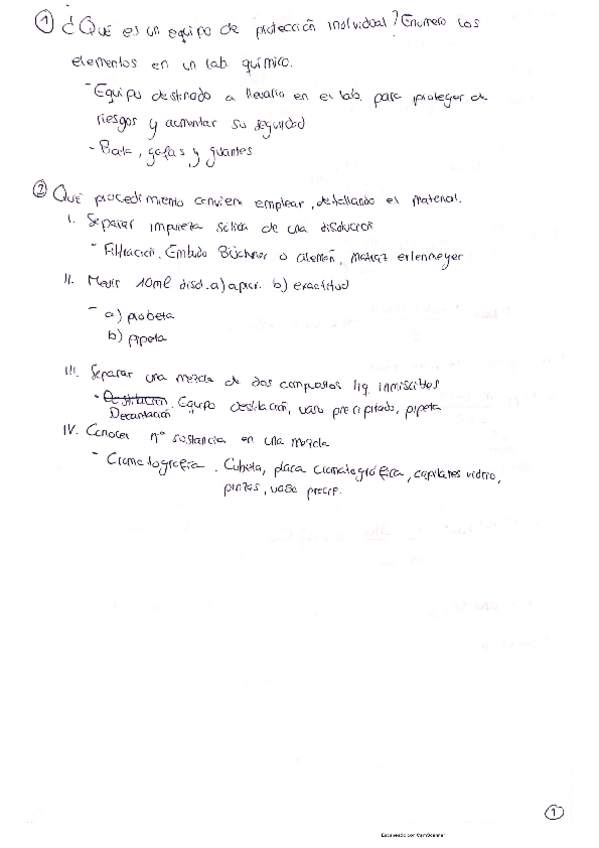 ① ¿Qué es un equipo de protección individual? Enumero los
elementos en un lab. químico.
- Equipo destinado a llevarlo en el lab. para proteger de
riesgos y aumentar su seguridad
- Bata, gafas y guantes
② Qué procedimiento conviene emplear, detallando el material.
I. Separar impureza sólida de una disolución
- Filtración. Embudo Büchner o alemán, matraz erlenmeyer
II. Medir 10ml disol. a) aprox. b) exactitud
- a) probeta
b) pipeta
III. Separar una mezcla de dos compuestos liq. inmiscibles
- Destilación. Equipo destilación, vaso precipitado, pipeta
Decantación
IV. Conocer nº sustancia en una mezcla
- Cromatografía. Cubeta, placa cromatográfica, capilares vidrio,
pinzas, vaso precip.
1
Escaneado con CamScanner